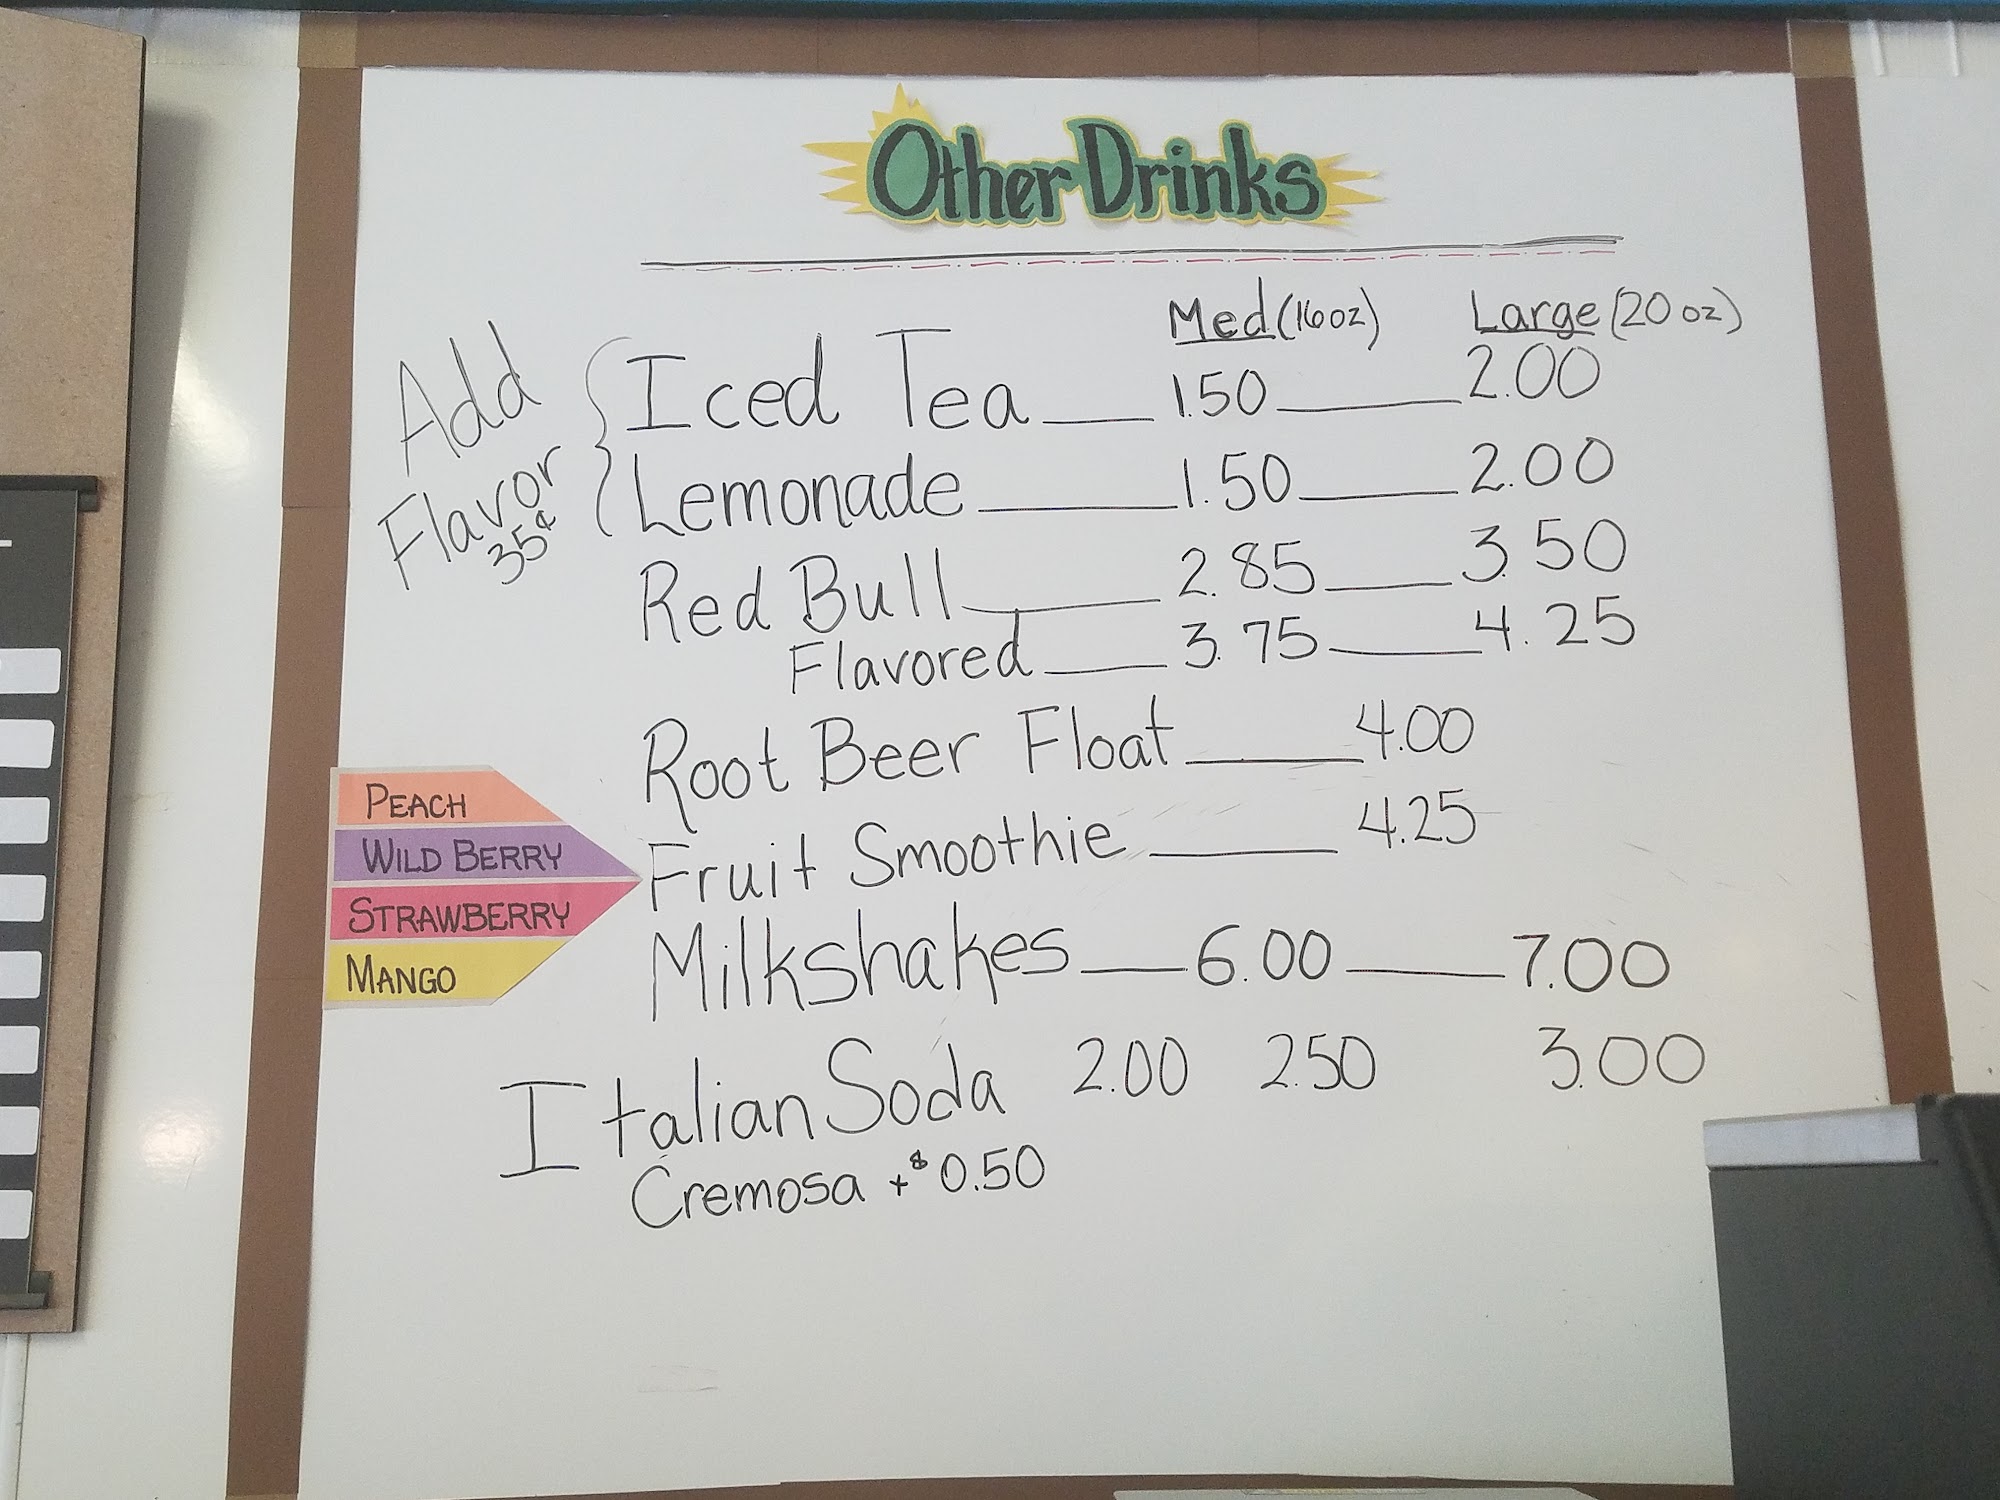 Other Drinks
Med. (16oz) Large (20 oz)
Add Flavor 35¢
Iced Tea 1.50 2.00
Lemonade 1.50 2.00
Red Bull 2.85 3.50
Flavored 3.75 4.25
Root Beer Float 4.00
Fruit Smoothie 4.25
PEACH
WILD BERRY
STRAWBERRY
MANGO
Milkshakes 6.00 7.00
Italian Soda 2.00 2.50 3.00
Cremosa + $0.50